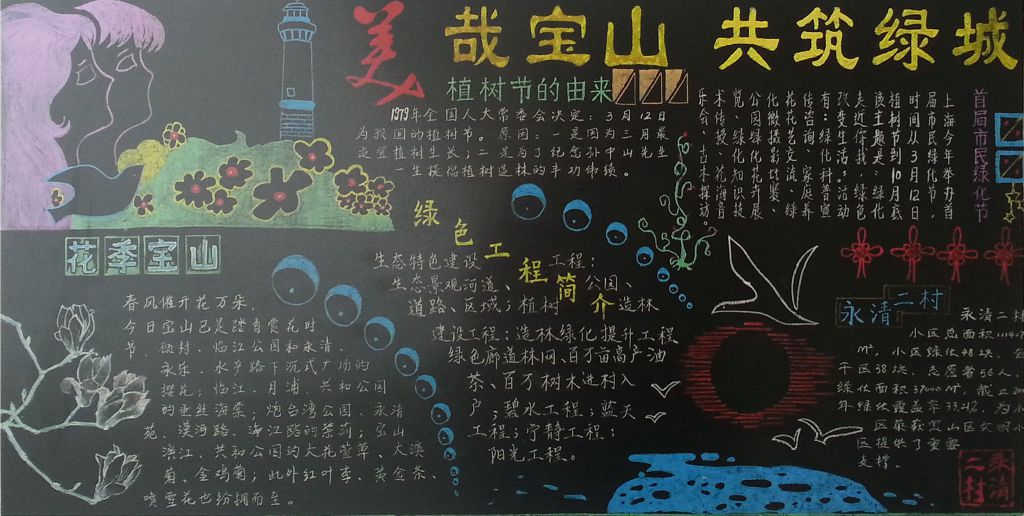 美哉宝山 共筑绿城
植树节的由来
1979年全国人大常委会决定:3月12日
为我国的植树节。原因:一是因为三月最
适宜植树生长;二是为了纪念孙中山先生
一生提倡植树造林的丰功伟绩。
首届市民绿化节
上海今年举办首
届市民绿化节,
时间从3月12日
植树节到10月底
该主题是:绿化
走近你我,绿色
改变生活。活动
有:绿化科普宣
传咨询、家庭养
花花艺交流、绿
化微摄影比赛、
公园绿化花卉展
览、绿化知识技
术传授、花海音
乐会、古木探访。
花季宝山
春风催开花万朵,
今日宝山已是踏青赏花时
节。顾村、临江公园和永清、
永乐、水乎路下沉式广场的
樱花;临江、月浦、共和公园
的垂丝海棠;炮台湾公园、永清
苑、漠河路、海江路的茶莉;宝山
滨江、共和公园的大花萱草、大滨
菊、金鸡菊;此外红叶李、黄金条、
喷雪花也纷拥而至。
绿色工程简介
生态特色建设工程:
生态景观河道、公园、
道路、区域;植树造林
建设工程:造林绿化提升工程
绿色廊道林网、百万亩高产油
茶、百万树木进村入
户;碧水工程;蓝天
工程;宁静工程;
阳光工程。
永清二村
永清二村
小区总面积
m²,小区绿化48块、
干区38块,志愿者56人,
绿化面积37000m²,截止20
外绿化覆盖率33.21%,为小
区荣获宝山区文明小
区提供了重要
支撑。
永清二村